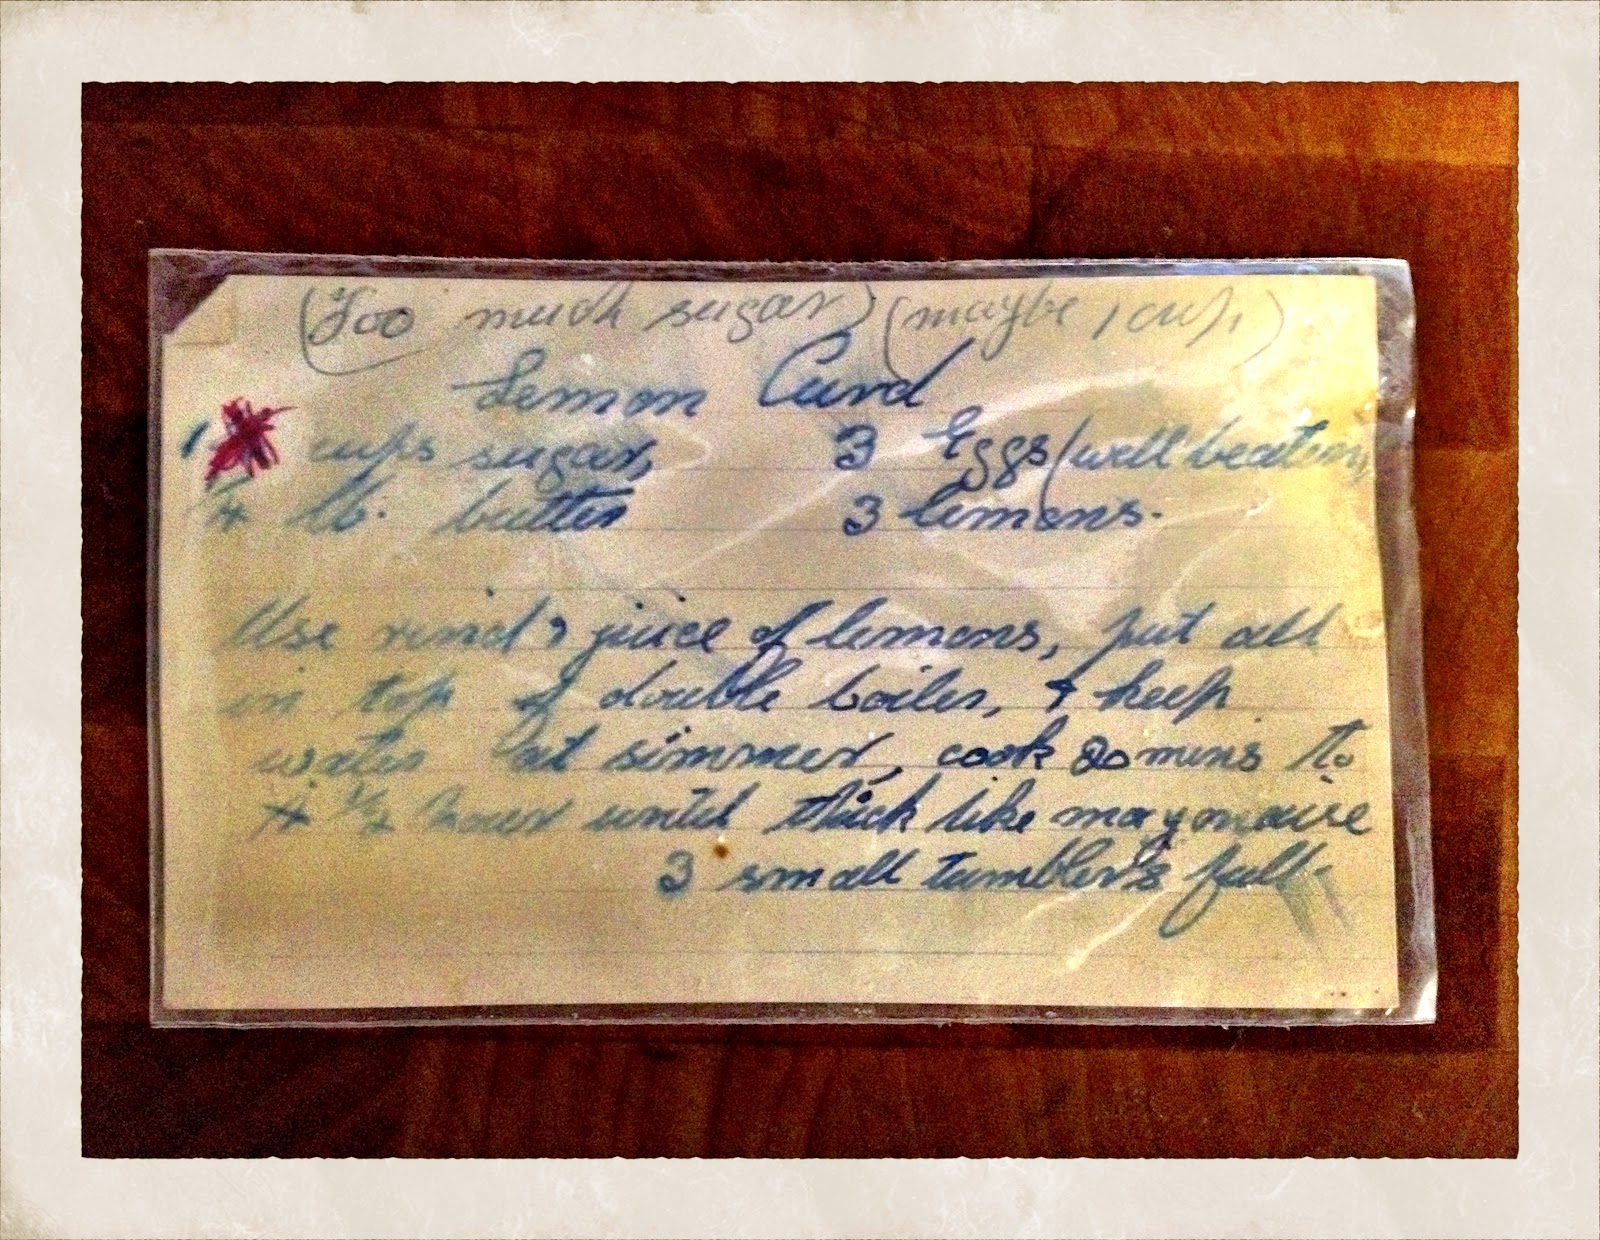 (Too much sugar) (maybe 1 cup,)
Lemon Curd
1 cups sugar, 3 Eggs (well beaten,
1/4 lb. butter 3 lemons.
Use rind & juice of lemons, put all
in top of double boiler, & keep
water at simmer, cook 20 mins to
1/2 hour until thick like mayonaise
3 small tumblers full.